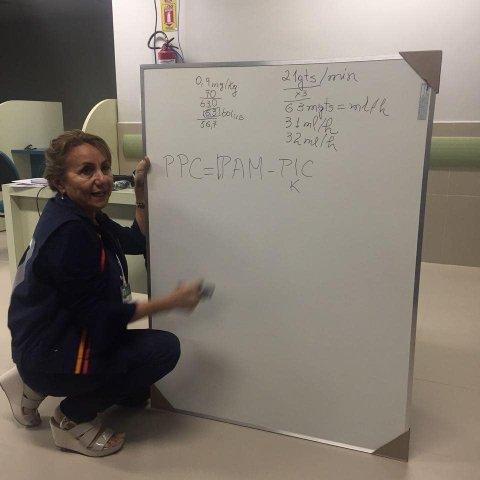 0,9 mg/kg
70
630
6,3 bolus
56,7
21gts/min
x3
63 mgts = ml/h
31 ml/h
32 ml/h
PPC = PAM - PIC
K